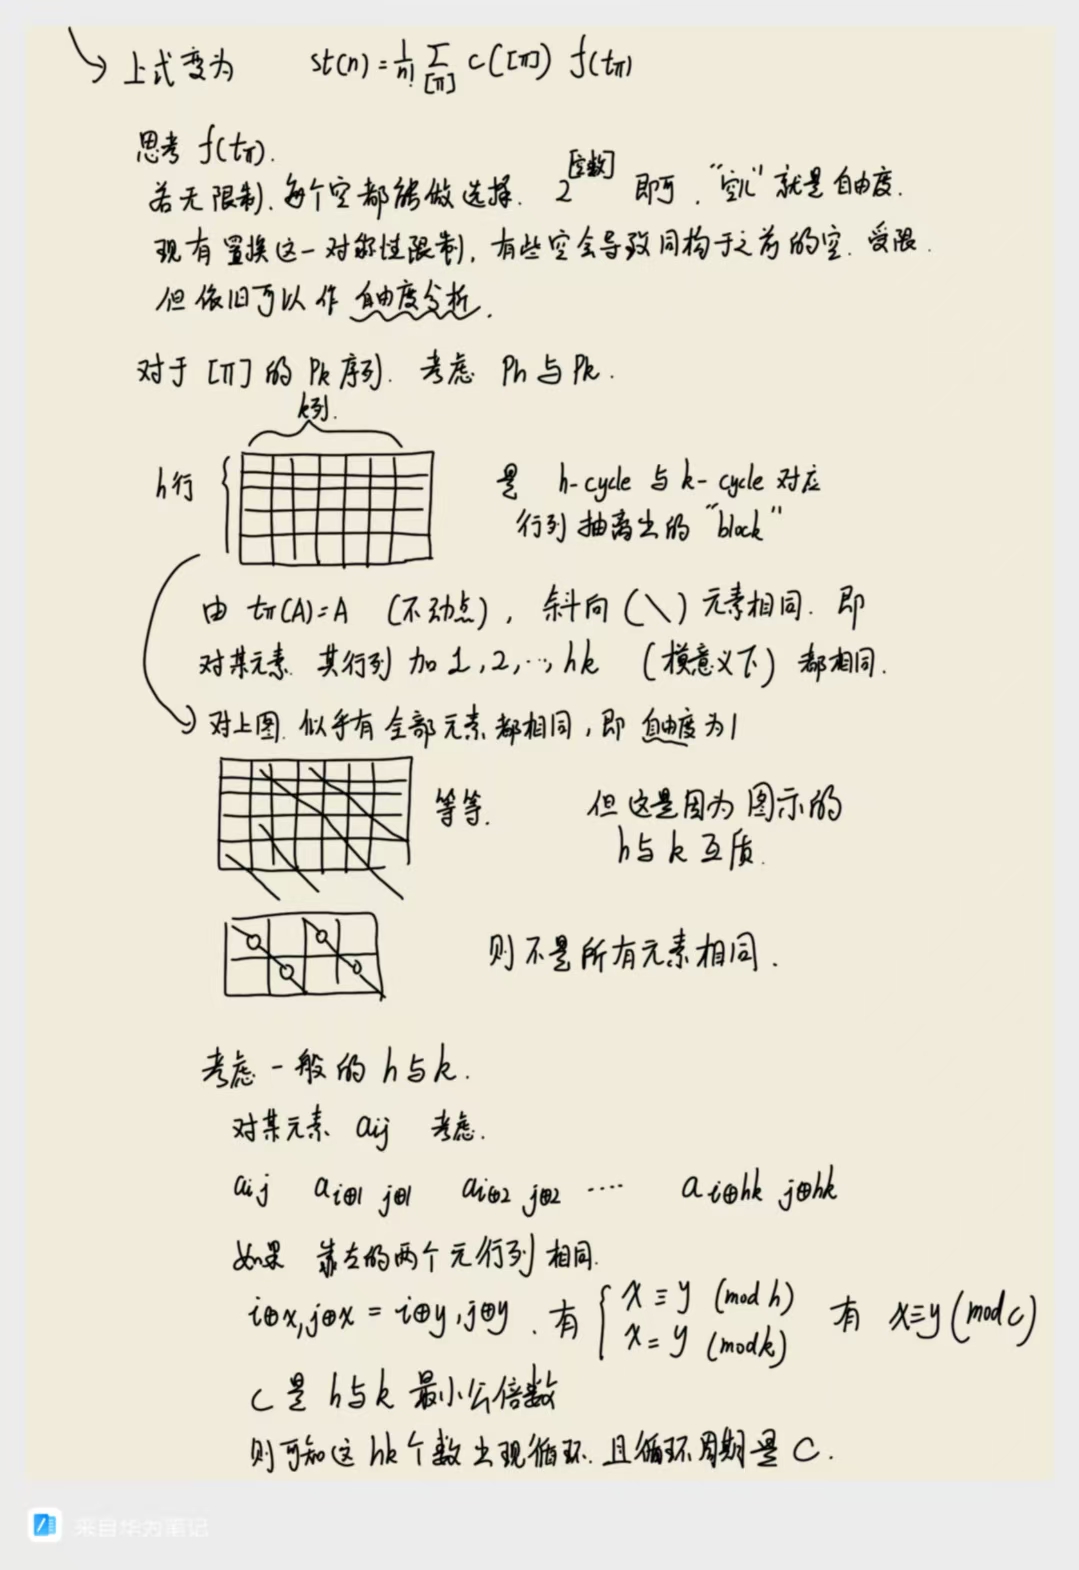 上式变为 st(n) = 1/n! Σ_[π] c([π]) f(tπ)
思考 f(tπ).
若无限制, 每个空都能做选择. 2^[空数] 即可. "空儿" 就是自由度.
现有置换这一对称性限制, 有些空会导致同构于之前的空. 受限.
但依旧可以作自由度分析.
对于 [π] 的 Pk 序列. 考虑 Ph 与 Pk.
k列.
h行
是 h-cycle 与 k-cycle 对应
行列抽离出的 "block"
由 tπ(A)=A (不动点), 斜向 (\) 元素相同. 即
对某元素. 其行列加 1, 2, …, hk (模意义下) 都相同.
对上图. 似乎有全部元素都相同, 即自由度为1
等等.
但这是因为图示的
h与k互质.
则不是所有元素相同.
考虑一般的 h与k.
对某元素 aij 考虑.
aij a i⊕1 j⊕1 a i⊕2 j⊕2 …. a i⊕hk j⊕hk
如果 靠左的两个元行列相同.
i⊕x, j⊕x = i⊕y, j⊕y. 有 { x ≡ y (mod h) 有 x≡y (mod c)
x = y (mod k)
C 是 h与k 最小公倍数
则可知这 hk个数出现循环. 且循环周期是 C.
来自华为笔记